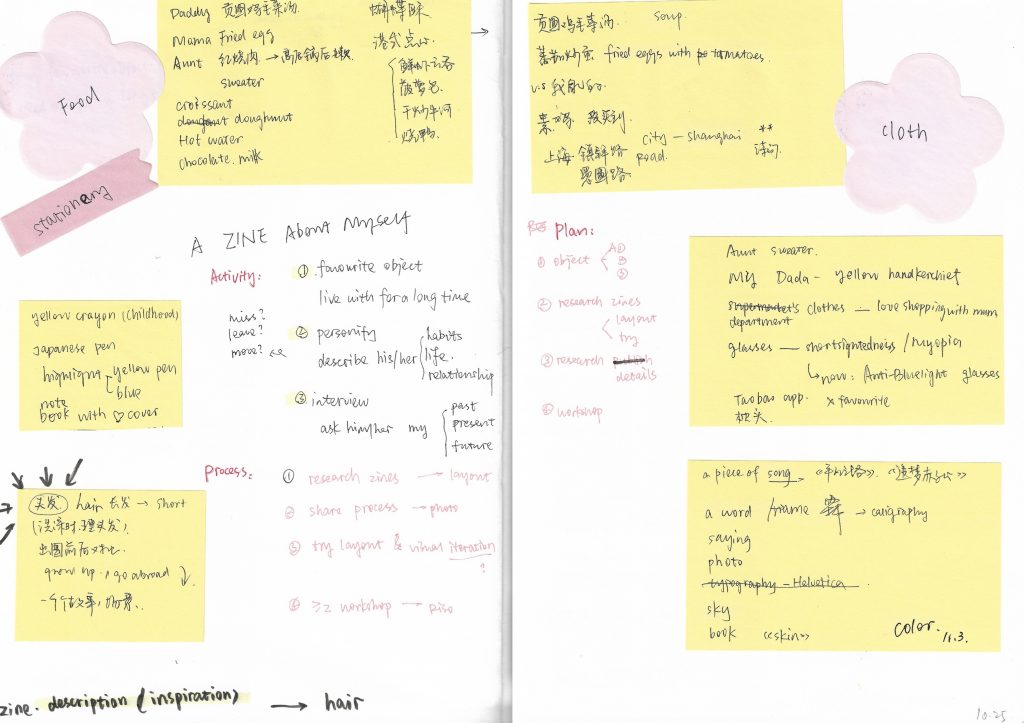 Food
stationery
Daddy 贡圆鸡毛菜汤
Mama Fried egg
Aunt 红烧肉 → 高压锅后
sweater
croissant
doughnut
Hot water
chocolate milk
蝴蝶酥
港式点心
鲜虾云吞
菠萝包
干炒牛河
烧鸭
A ZINE About Myself
Activity:
① favourite object
live with for a long time
miss?
leave?
move?
② personify
describe his/her
habits
life.
relationship
③ interview
ask him/her my
past
present
future
Process:
① research zines → layout
② share process → photo
③ try layout & visual iteration
?
④ ≥2 workshop → riso
yellow crayon (childhood)
Japanese pen
highlight
yellow pen
blue
note
book with ♡ cover
头发 hair 长发 → short
出国前后对比
grow up, go abroad
zine. description (inspiration) → hair
贡圆鸡毛菜汤 soup
番茄炒蛋 fried eggs with tomatoes.
city – shanghai
上海 镇宁路 road
愚园路
cloth
Plan:
① object
A①
B
③
② research zines
layout
try
③ research
details
④ workshop
Aunt sweater.
My Dada – yellow handkerchief
supermarket's clothes — love shopping with mum
department
glasses — shortsightedness / myopia
↳ now: Anti-Bluelight glasses
Taobao app. x favourite
枕头
a piece of song 《平凡之路》.《追梦赤子心》
a word /name 霏 → caligraphy
saying
photo
typography – Helvetica
sky
book 《skin》
color. 11.3.
10.25